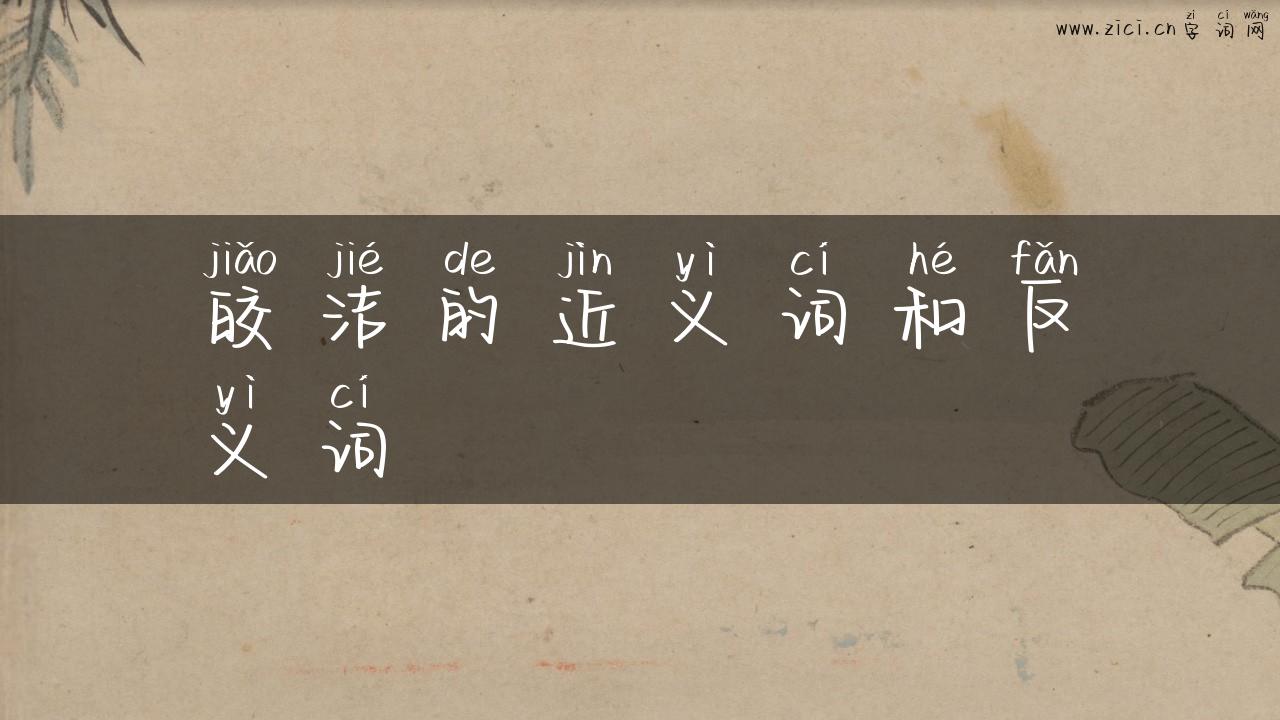 zì cí wǎng
www.zici.cn 字 词 网
jiǎo jié de jìn yì cí hé fǎn
皎 洁 的 近 义 词 和 反
yì cí
义 词